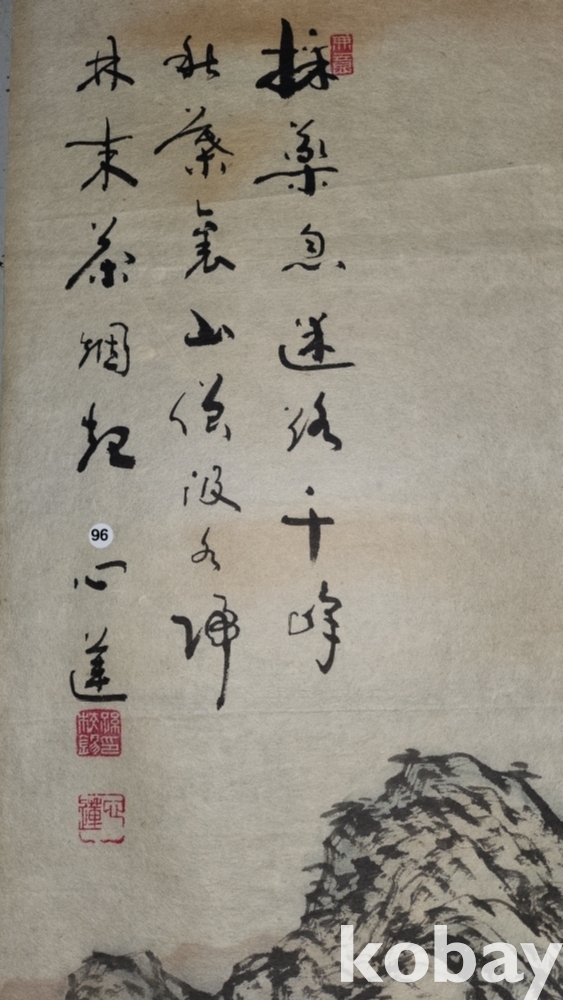 採藥忽迷路千峰
秋葉裏山僧汲水歸
林末茶烟起 心蓮
96
kobay